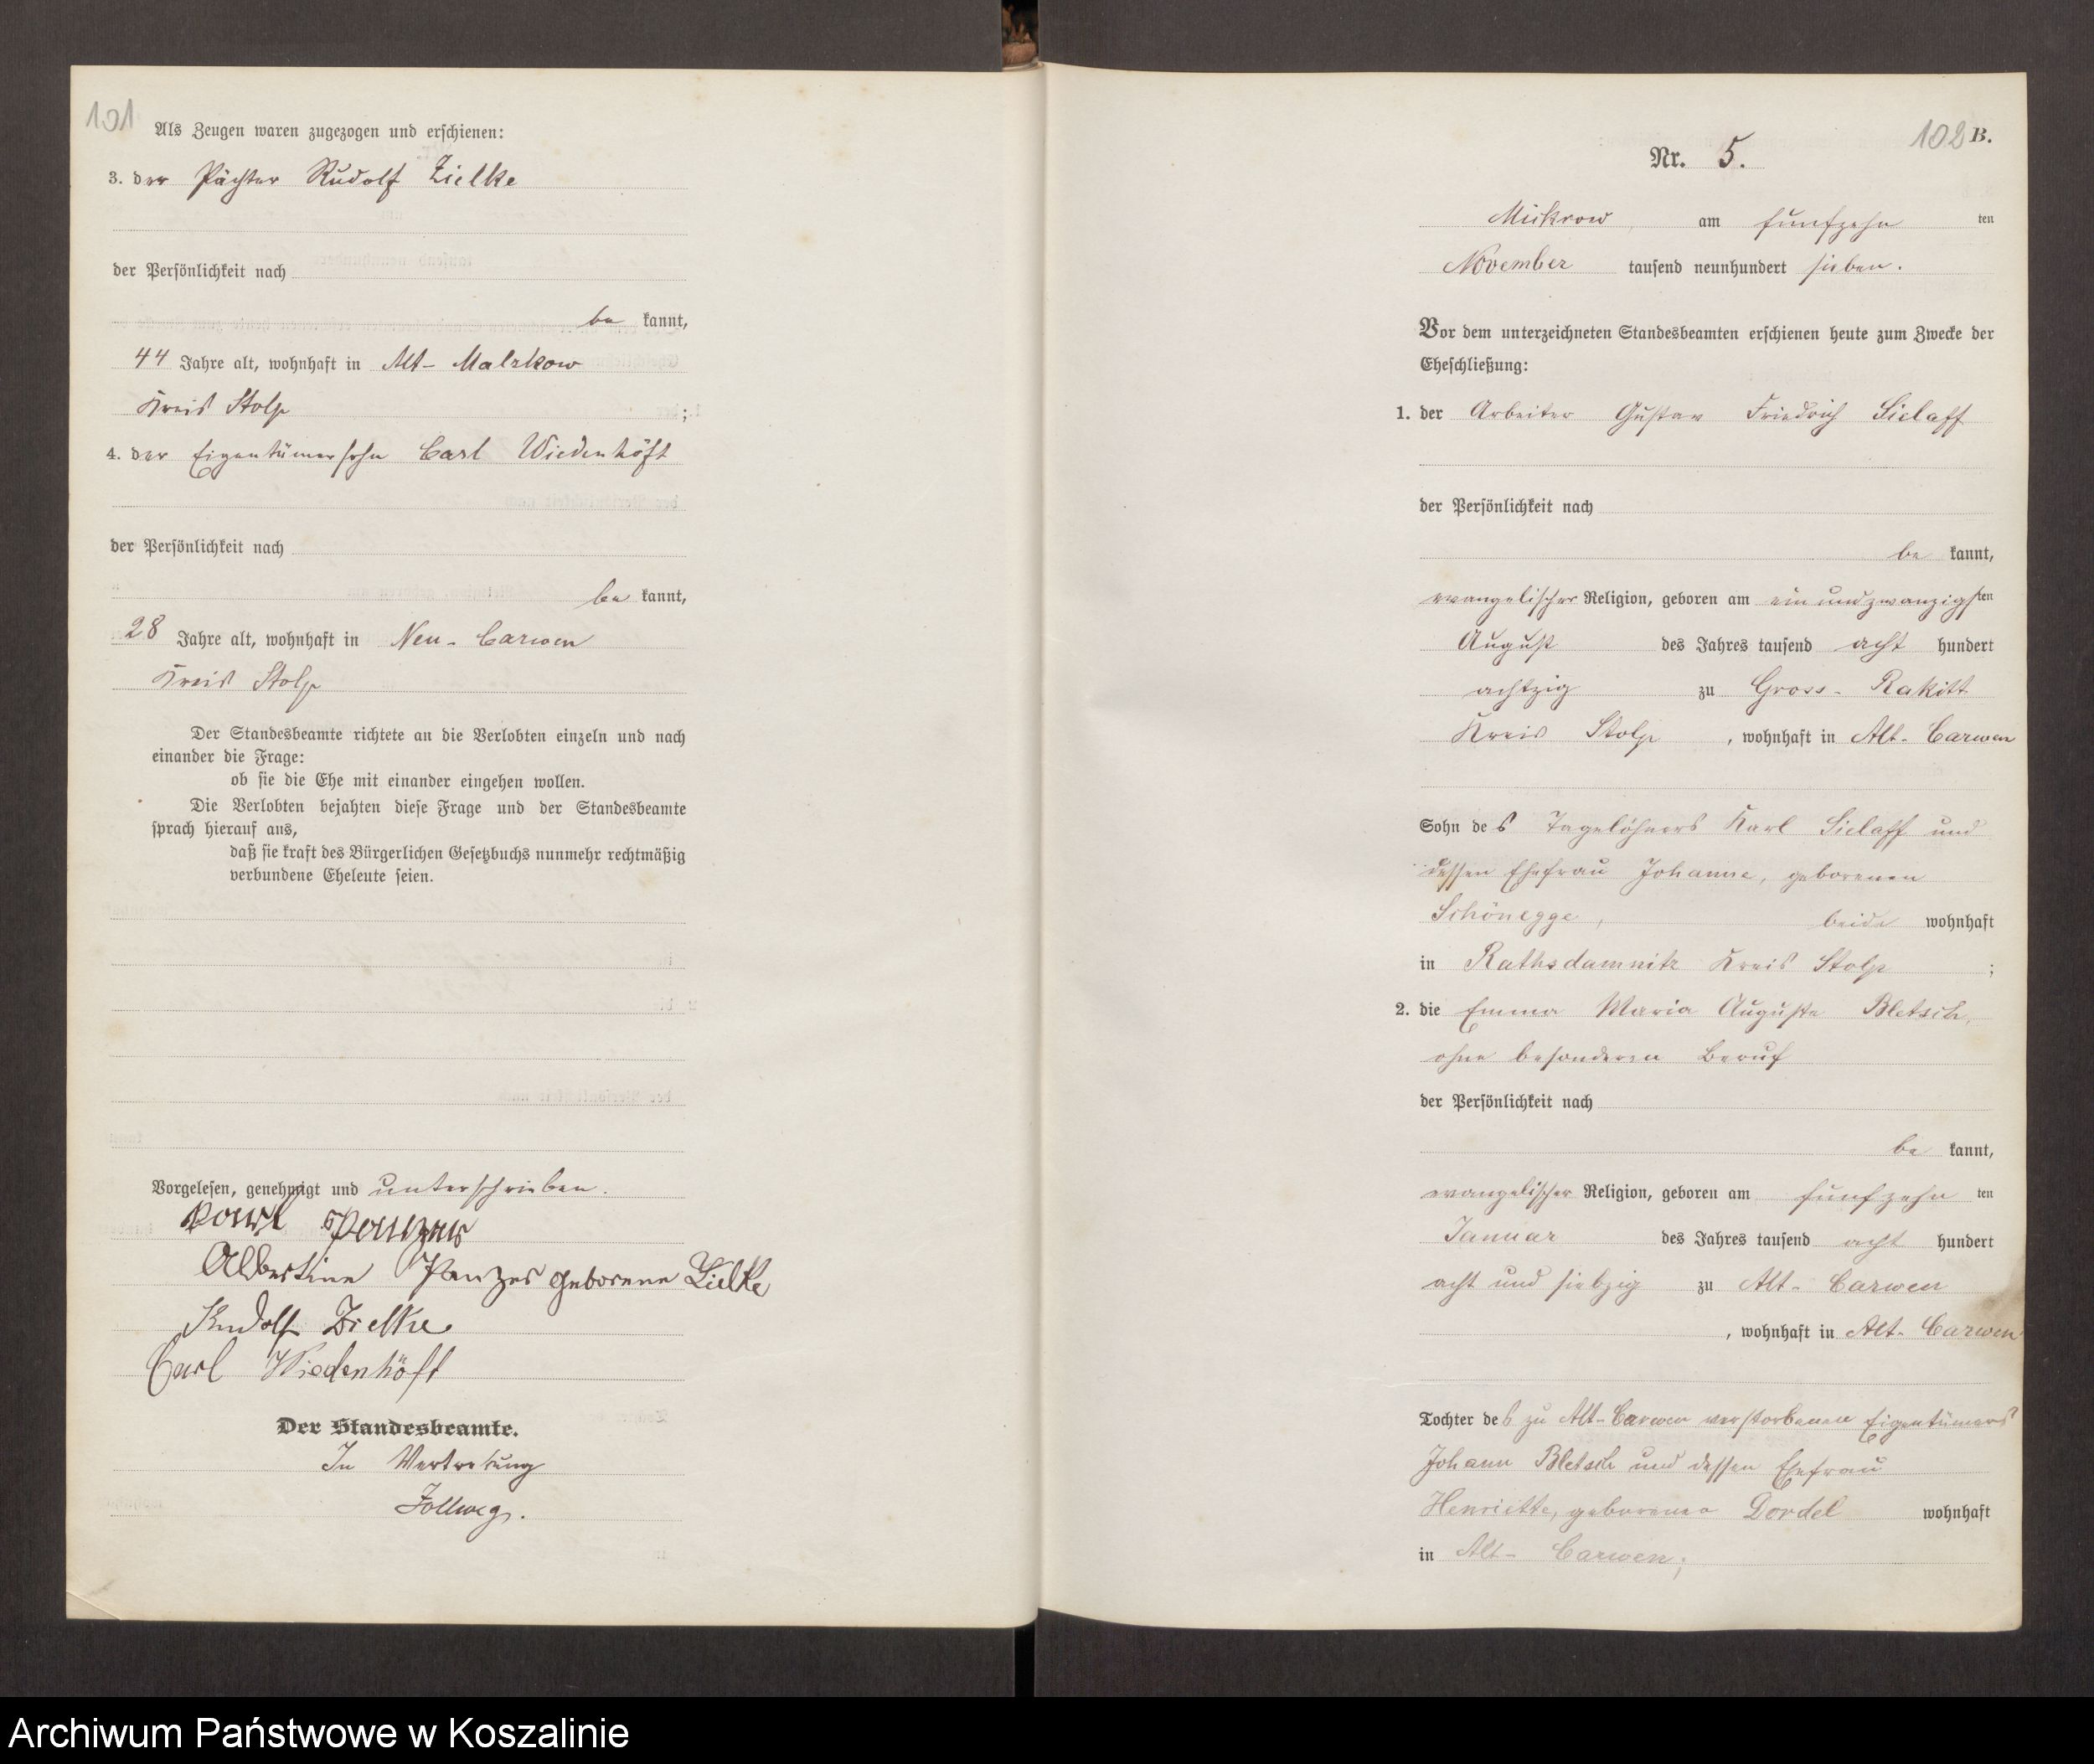 101
Als Zeugen waren zugezogen und erschienen:
3. der Pächter Rudolf Zielke
der Persönlichkeit nach
be kannt,
44 Jahre alt, wohnhaft in Alt-Malzkow
Kreis Stolp ;
4. der Eigentümersohn Carl Wiedenhöft
der Persönlichkeit nach
be kannt,
28 Jahre alt, wohnhaft in Neu-Carwen
Kreis Stolp
Der Standesbeamte richtete an die Verlobten einzeln und nach
einander die Frage:
ob sie die Ehe mit einander eingehen wollen.
Die Verlobten bejahten diese Frage und der Standesbeamte
sprach hierauf aus,
daß sie kraft des Bürgerlichen Gesetzbuchs nunmehr rechtmäßig
verbundene Eheleute seien.
Vorgelesen, genehmigt und unterschrieben.
Karl Panzer
Albertine Panzer geborene Zielke
Rudolf Zielke
Carl Wiedenhöft
Der Standesbeamte.
In Vertretung
Zollweg.
102 B.
Nr. 5.
Mickrow, am fünfzehn ten
November tausend neunhundert sieben.
Vor dem unterzeichneten Standesbeamten erschienen heute zum Zwecke der
Eheschließung:
1. der Arbeiter Gustav Friedrich Sielaff
der Persönlichkeit nach
be kannt,
evangelischer Religion, geboren am ein und zwanzigsten
August des Jahres tausend acht hundert
achtzig zu Gross-Rakitt
Kreis Stolp, wohnhaft in Alt-Carwen
Sohn des Tagelöhners Karl Sielaff und
dessen Ehefrau Johanne, geborenen
Schönegge, beide wohnhaft
in Rathsdamnitz Kreis Stolp ;
2. die Emma Maria Auguste Bletsch,
ohne besonderen Beruf
der Persönlichkeit nach
be kannt,
evangelischer Religion, geboren am fünfzehn ten
Januar des Jahres tausend acht hundert
acht und siebzig zu Alt-Carwen
, wohnhaft in Alt-Carwen
Tochter des zu Alt-Carwen verstorbenen Eigentümers
Johann Bletsch und dessen Ehefrau
Henriette, geborene Dordel wohnhaft
in Alt-Carwen;
Archiwum Państwowe w Koszalinie